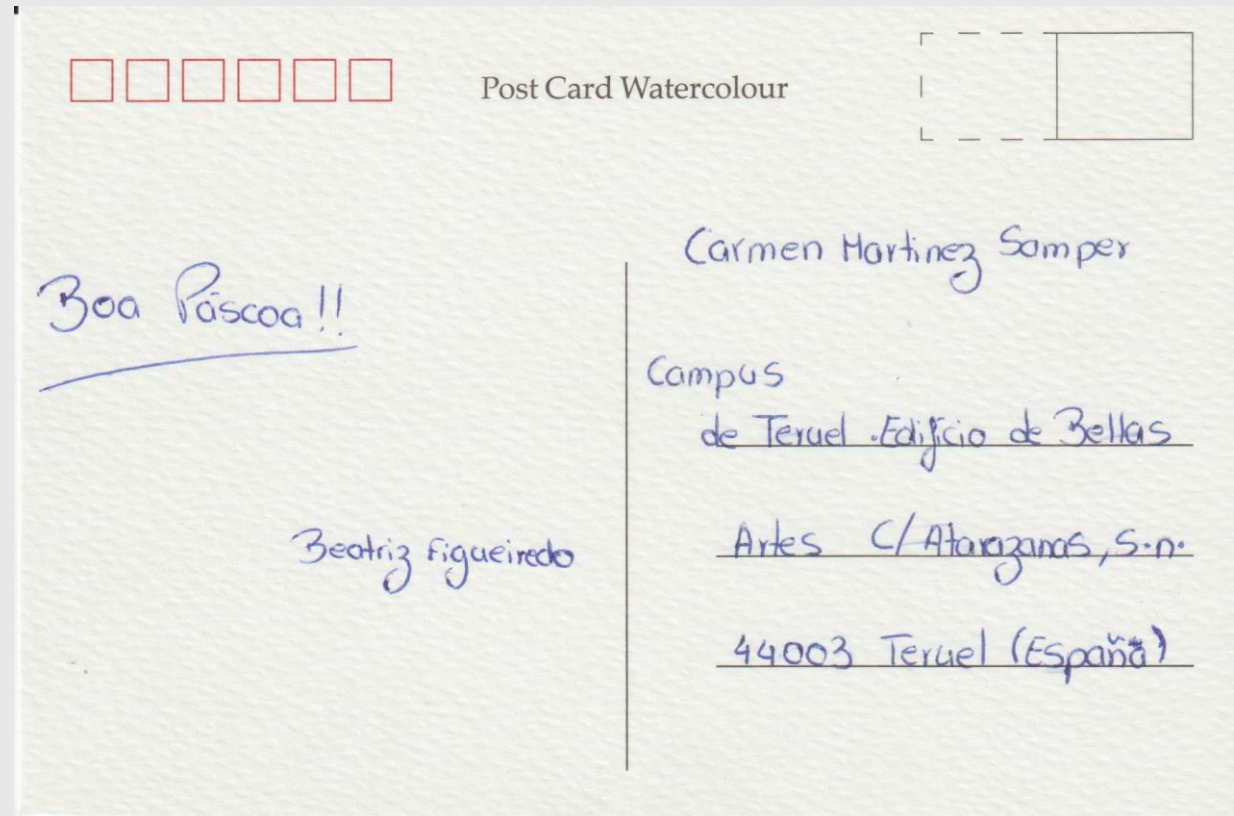 Post Card Watercolour
Boa Páscoa!!
Beatriz Figueiredo
Carmen Martinez Samper
Campus
de Teruel. Edificio de Bellas
Artes C/ Atarazanas, S.n.
44003 Teruel (España)